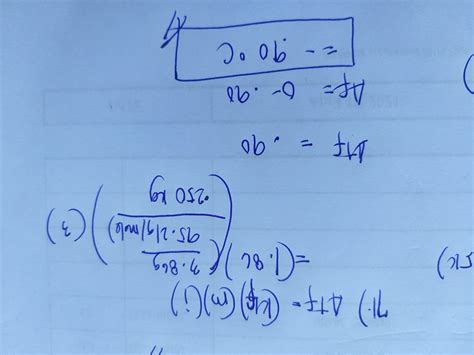 71.) ΔTf = (kf)(m)(i)
= (1.86)(3.86g
95.21g/mole)
.250 kg) (3)
ΔTf = .90
Δf = 0-.90
= -.90°C